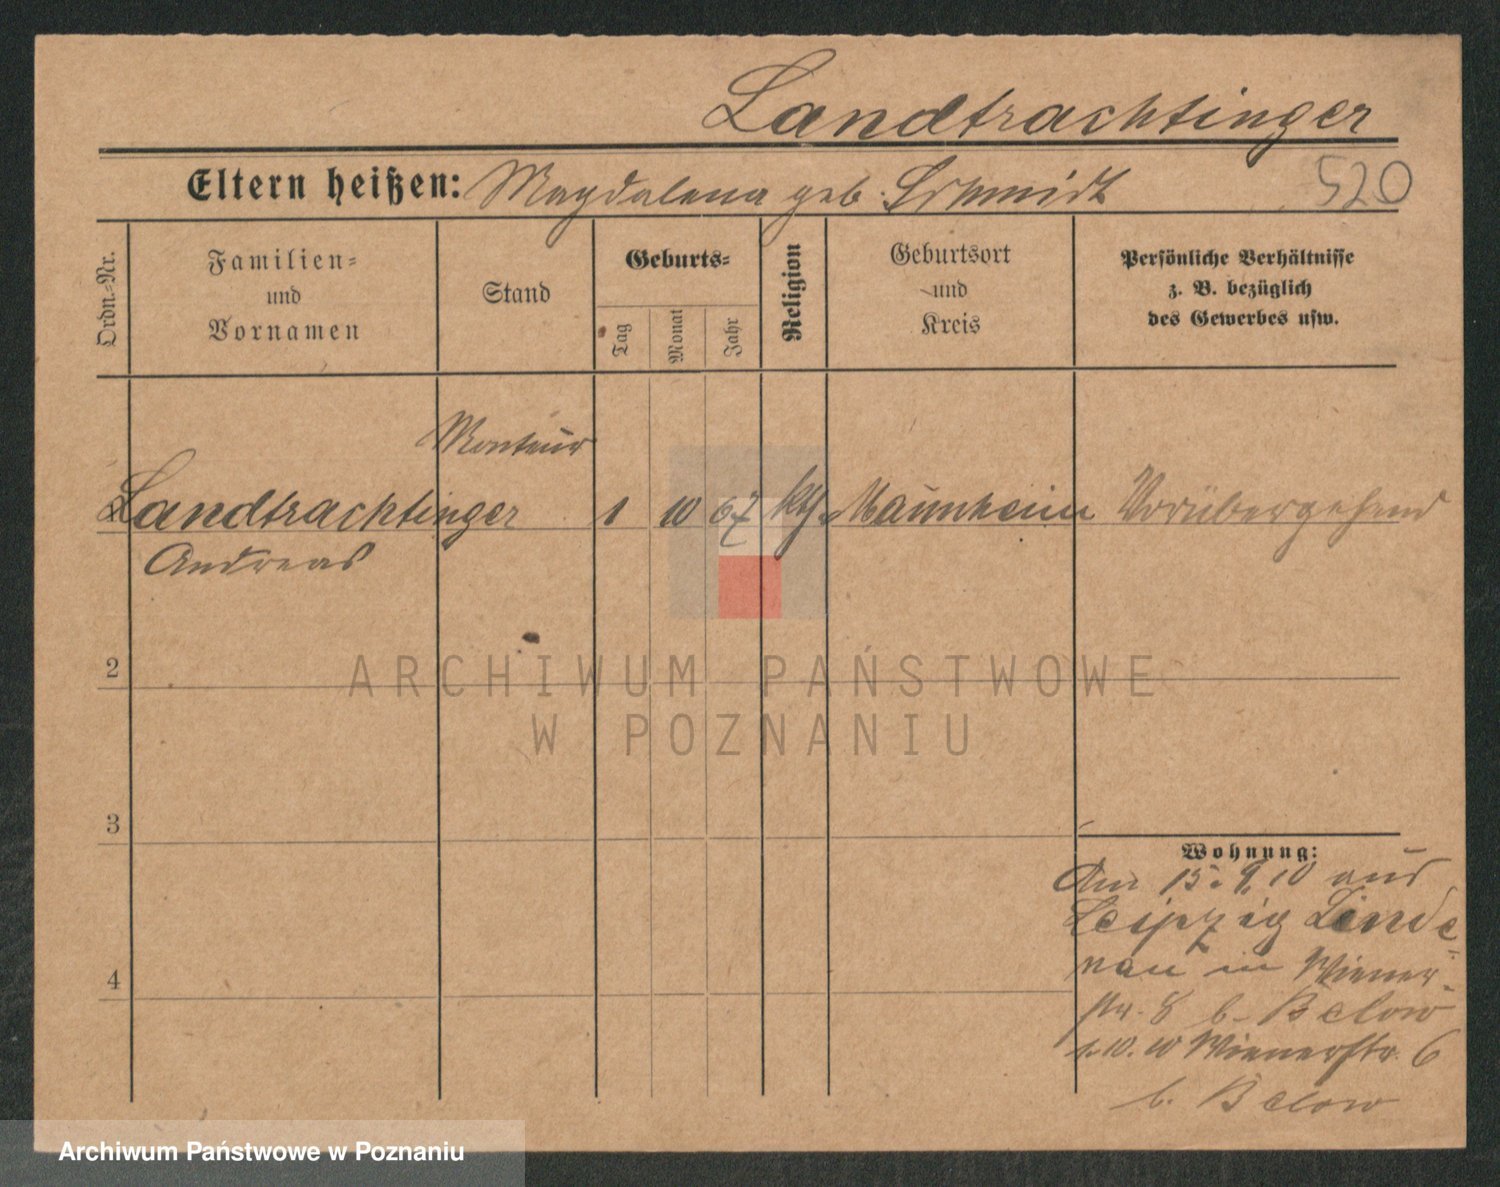 Landtrachtinger
Eltern heißen: Magdalena geb. Schmidt 520
Ordn.-Nr.
Familien-
und
Vornamen
Stand
Geburts-
Tag
Monat
Jahr
Religion
Geburtsort
und
Kreis
Persönliche Verhältnisse
z. B. bezüglich
des Gewerbes usw.
Monteur
Landtrachtinger 1 10 67 kth. Mannheim Vorübergehend
Andreas
2
ARCHIWUM PAŃSTWOWE
W POZNANIU
3
Wohnung:
Am 15.9.10 aus
Leipzig Linde
nau in Wiener-
str. 8 b. Below
1.10.10 Wienerstr. 6
b. Below
4
Archiwum Państwowe w Poznaniu